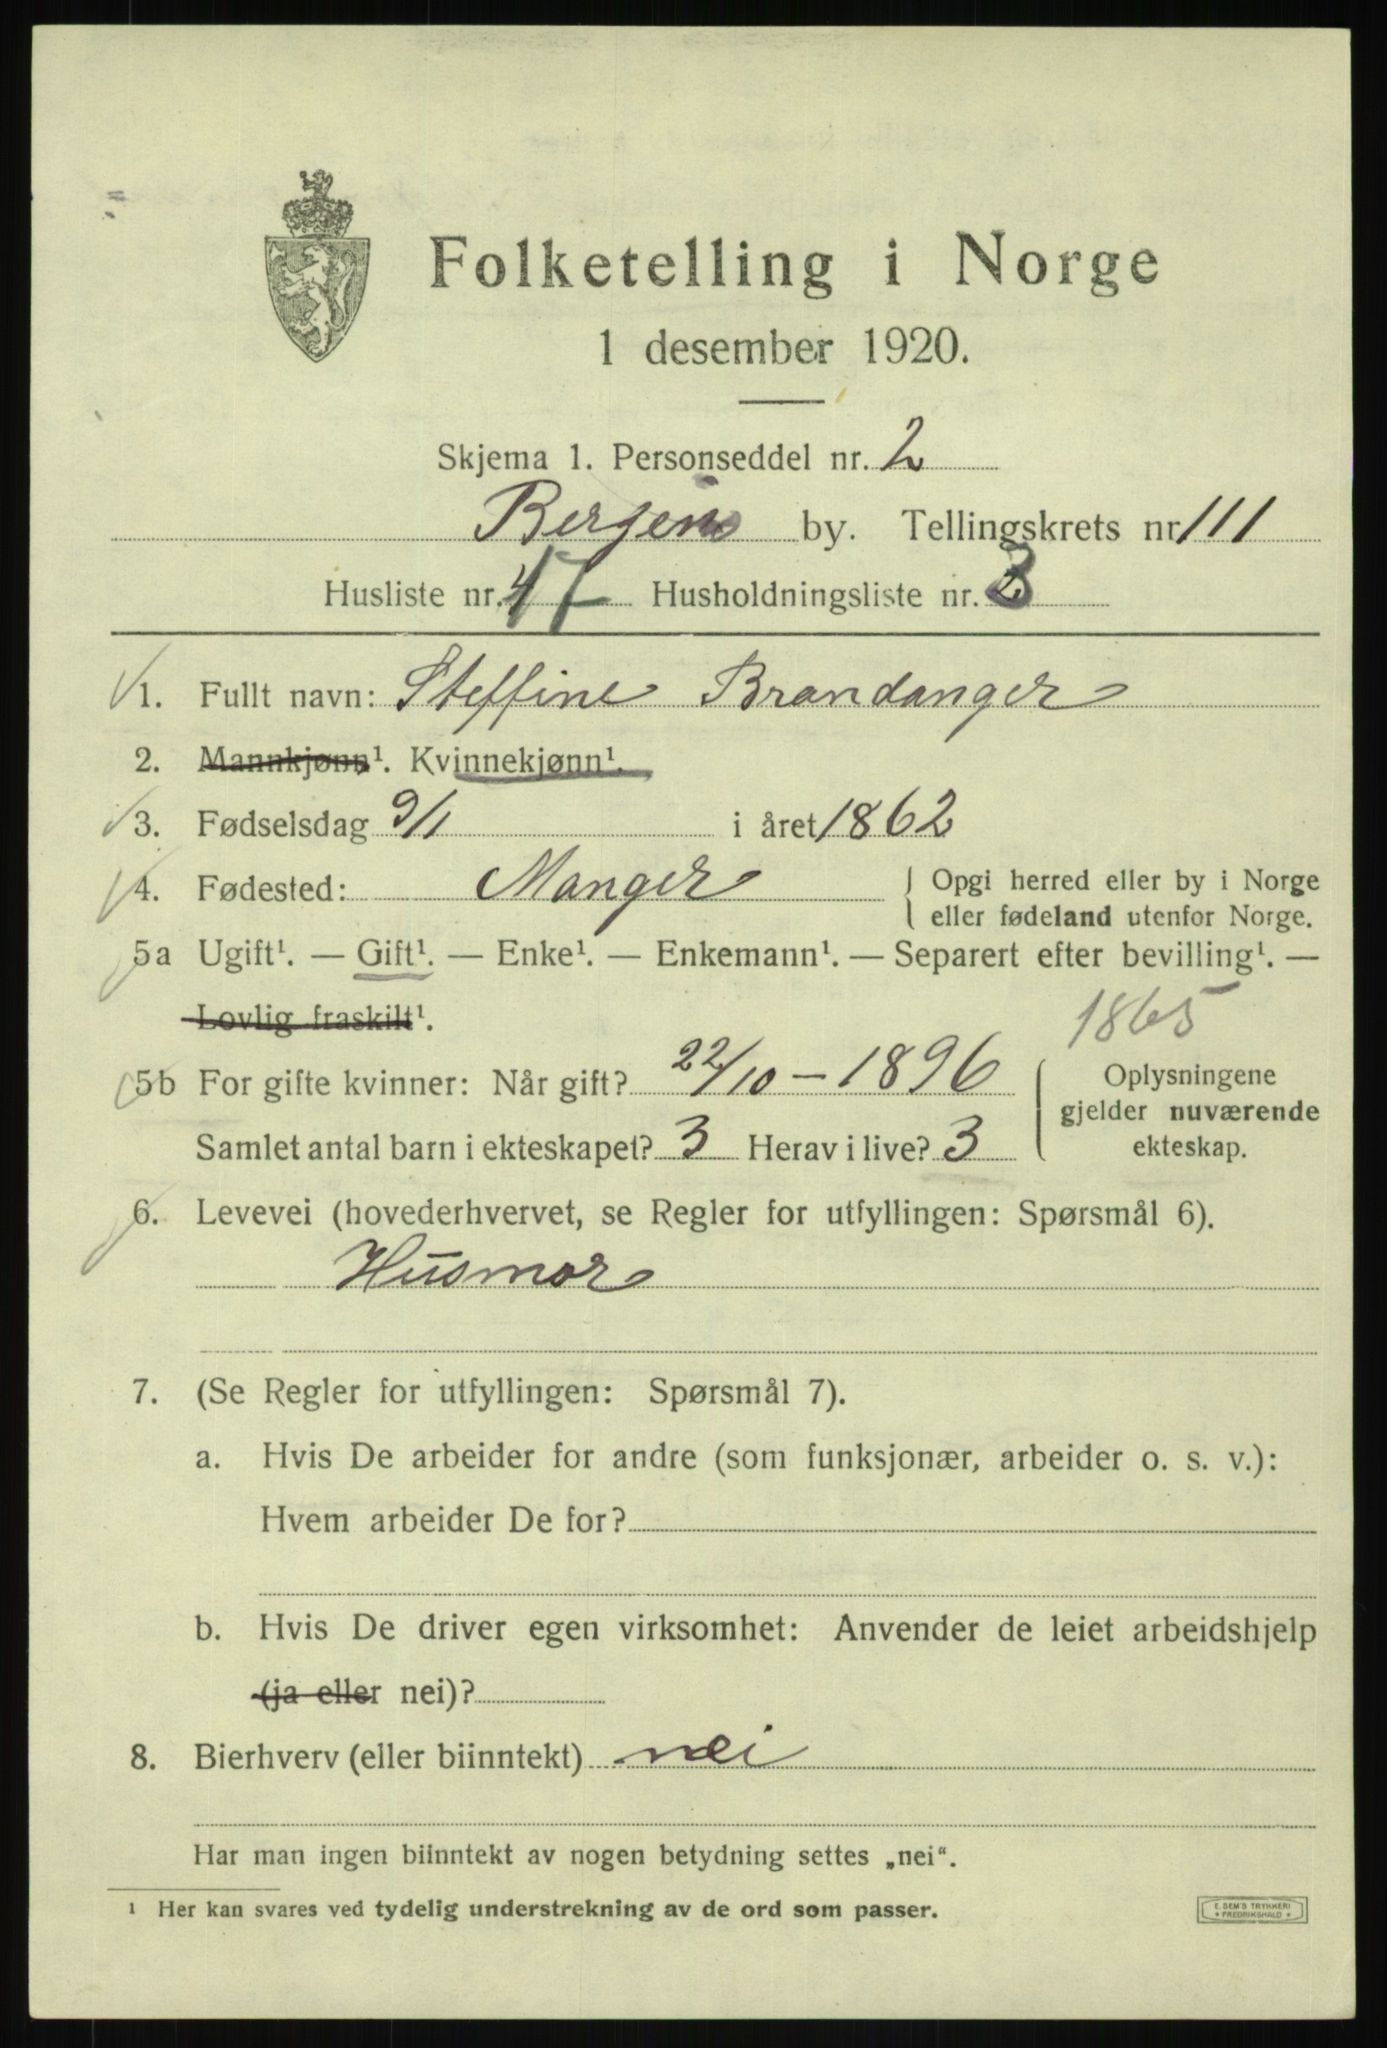 Folketelling i Norge
1 desember 1920.
Skjema 1. Personseddel nr. 2
Bergens by. Tellingskrets nr. 111
Husliste nr. 47 Husholdningsliste nr. 3
1. Fullt navn: Steffine Brandanger
2. Mannkjønn¹. Kvinnekjønn¹.
3. Fødselsdag 9/1 i året 1862
4. Fødested: Manger { Opgi herred eller by i Norge
eller fødeland utenfor Norge.
5a Ugift¹. — Gift¹. — Enke¹. — Enkemann¹. — Separert efter bevilling¹. —
Lovlig fraskilt¹.
1865
5b For gifte kvinner: Når gift? 22/10 – 1896
Samlet antal barn i ekteskapet? 3 Herav i live? 3
{ Oplysningene
gjelder nuværende
ekteskap.
6. Levevei (hovederhvervet, se Regler for utfyllingen: Spørsmål 6).
Husmor
7. (Se Regler for utfyllingen: Spørsmål 7).
a. Hvis De arbeider for andre (som funksjonær, arbeider o. s. v.):
Hvem arbeider De for?
b. Hvis De driver egen virksomhet: Anvender de leiet arbeidshjelp
(ja eller nei)?
8. Bierhverv (eller biinntekt) nei
Har man ingen biinntekt av nogen betydning settes „nei“.
¹ Her kan svares ved tydelig understrekning av de ord som passer.
E. SEM'S TRYKKERI
* FREDRIKSHALD *